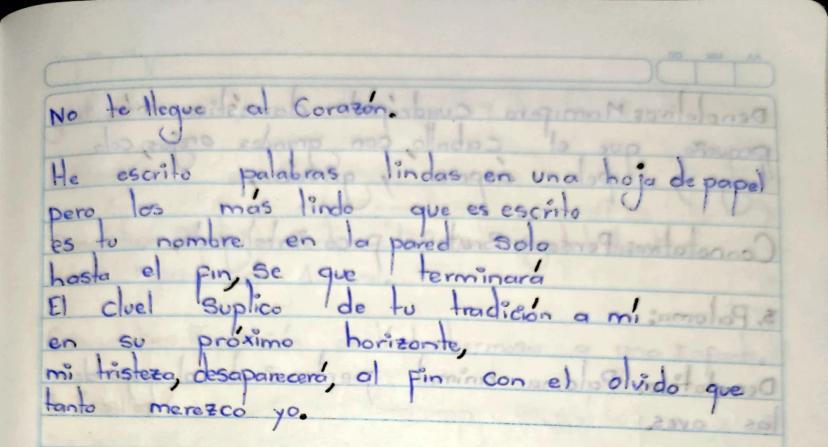 No te llegue al Corazón.
He escrito palabras lindas en una hoja de papel
pero los más lindo que es escrito
es tu nombre en la pared solo
hasta el fin, se que terminará
El cluel Suplico de tu tradición a mí
en su próximo horizonte,
mi tristeza, desaparecerá, al fin con el olvido que
tanto merezco yo.